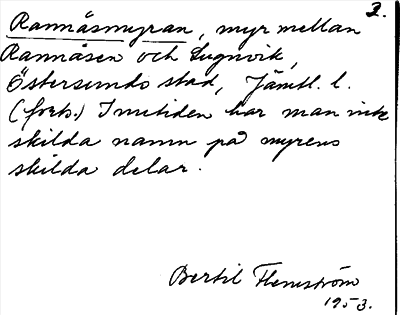 2.
Rannåsmyran, myr mellan
Rannåsen och Lugnvik,
Östersunds stad, Jämtl. l.
(forts.) I nutiden har man inte
skilda namn på myrens
skilda delar.
Bertil Flemström
1953.